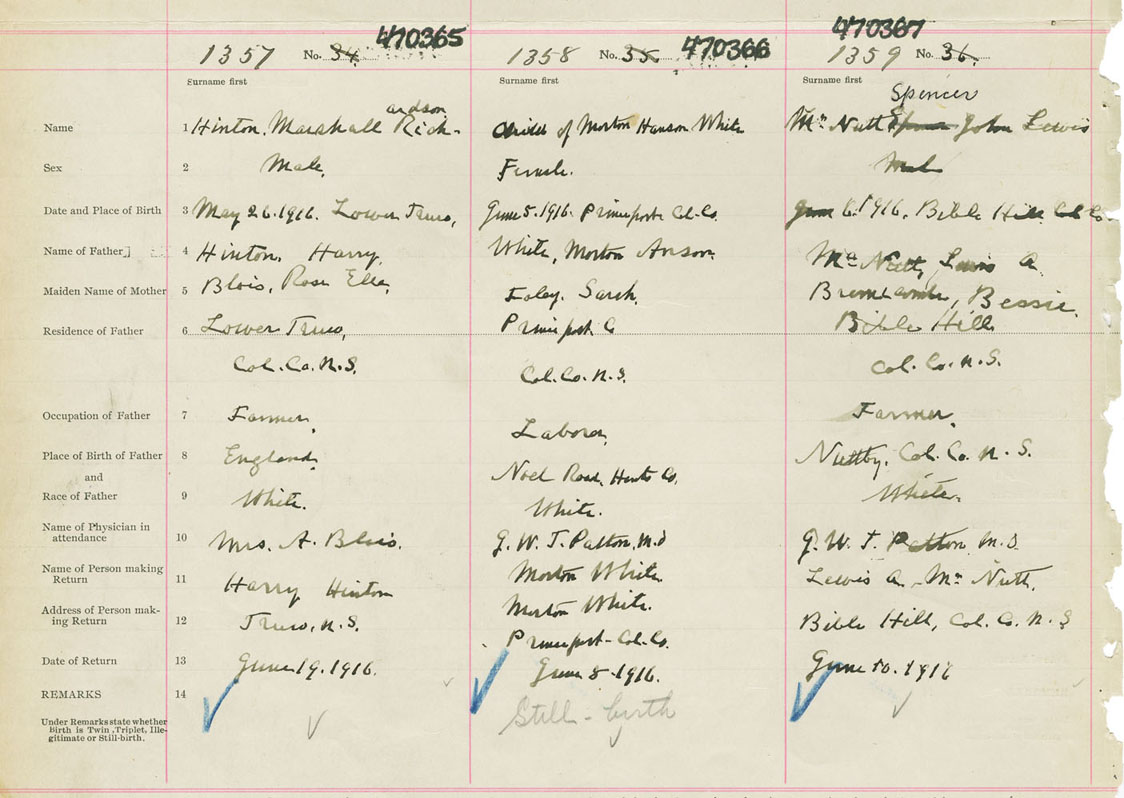 470365 470366 470367
1357 No. 34. 1358 No. 35. 1359 No. 36.
Surname first Surname first Surname first
Name 1 Hinton, Marshall Richardson child of Morton Hanson White McNutt Spencer John Lewis
Sex 2 Male, Female. Male
Date and Place of Birth 3 May 26.1916. Lower Truro, June 5.1916. Princeport Col-Co. June 6.1916, Bible Hill Col Co.
Name of Father 4 Hinton, Harry, White, Morton Anson. McNutt, Lewis A.
Maiden Name of Mother 5 Blois, Rose Ella, Foley, Sarah, Bessie.
Residence of Father 6 Lower Truro, Princeport Bible Hill
Col. Co. N.S. Col. Co. N.S. Col. Co. N.S.
Occupation of Father 7 Farmer, Labora, Farmer,
Place of Birth of Father 8 England, Noel Road, Hants Co. Nuttby, Col. Co. N.S.
and
Race of Father 9 White. White. White.
Name of Physician in
attendance 10 Mrs. A. Blois. G. W. T. Patton, M.D G. W. T. Patton, M.D.
Name of Person making
Return 11 Harry Hinton Morton White Lewis A. McNutt,
Morton White.
Address of Person mak-
ing Return 12 Truro, N.S. Princeport-Col-Co. Bible Hill, Col. Co. N.S
Date of Return 13 June 19.1916. June 8.1916. June 10.1916
REMARKS 14 Still-birth
Under Remarks state whether
Birth is Twin, Triplet, Ille-
gitimate or Still-birth.